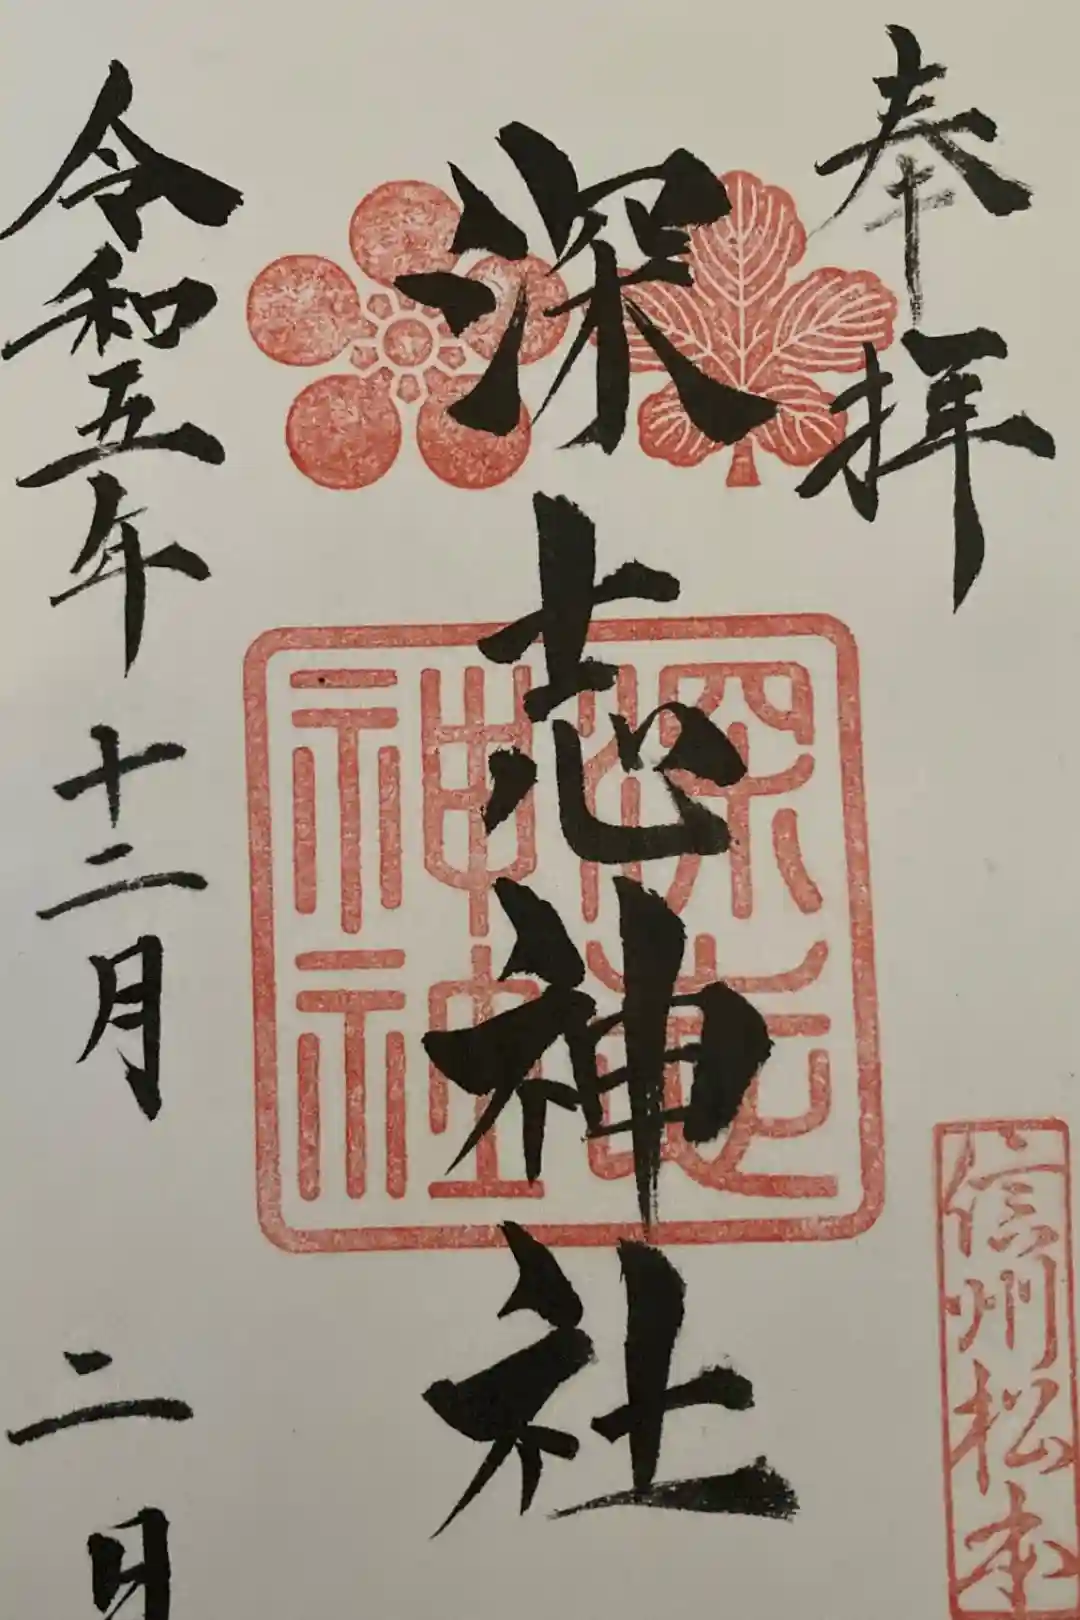 奉拝
信州松本
深志神社
深志神社
令和五年十二月二日